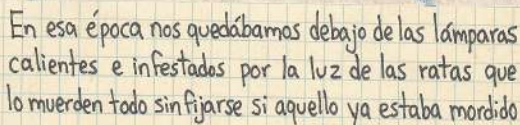 En esa época nos quedábamos debajo de las lámparas
calientes e infestados por la luz de las ratas que
lo muerden todo sin fijarse si aquello ya estaba mordido